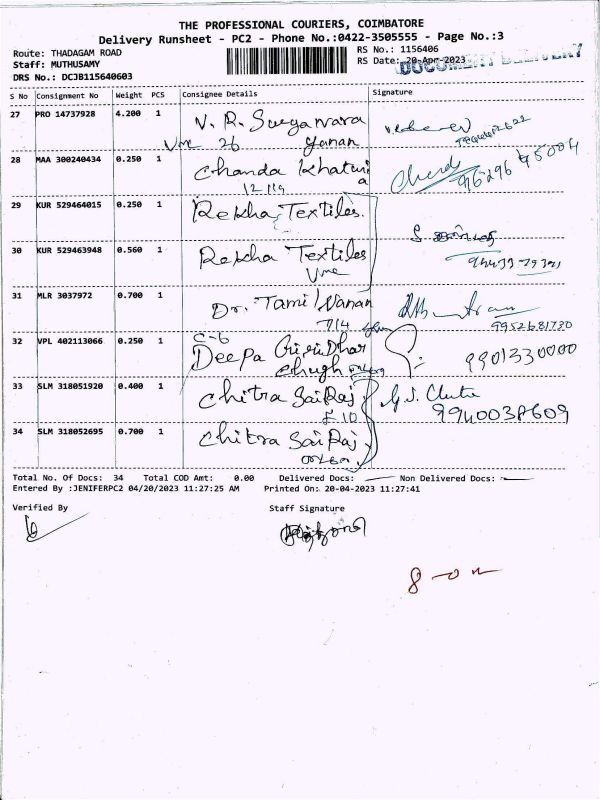 THE PROFESSIONAL COURIERS, COIMBATORE
Delivery Runsheet - PC2 - Phone No.:0422-3505555 - Page No.:3
Route: THADAGAM ROAD
RS No.: 1156406
Staff: MUTHUSAMY
RS Date: 20-Apr-2023
DOCUMENT DELIVERY
DRS No.: DCJB115640603
S No Consignment No Weight PCS Consignee Details Signature
27 PRO 14737928 4.200 1 V. R. Suryanara
Vme 26 yanan
28 MAA 300240434 0.250 1 Chanda Khatwi
a
96296 45004
29 KUR 529464015 0.250 1 Rekha Textiles.
30 KUR 529463948 0.560 1 Rekha Textiles
Vme
31 MLR 3037972 0.700 1 Dr. Tamil Vanan
7/4
9952681730
32 VPL 402113066 0.250 1 C-6
Deepa Giridhar
Chugh
9901330000
33 SLM 318051920 0.400 1 Chitra Sai Raj
G.S. Chitra
F10
34 SLM 318052695 0.700 1 Chitra Sai Raj
Total No. Of Docs: 34 Total COD Amt: 0.00 Delivered Docs: Non Delivered Docs:
Entered By :JENIFERPC2 04/20/2023 11:27:25 AM Printed On: 20-04-2023 11:27:41
Verified By Staff Signature